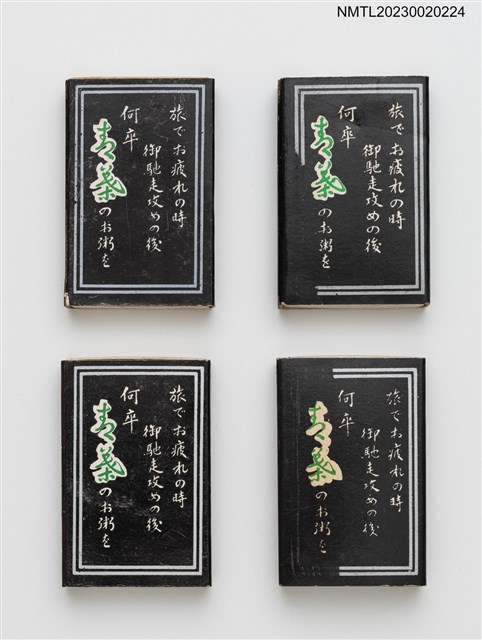 NMTL20230020224
旅でお疲れの時
御馳走攻めの後
何卒
青葉のお粥を
旅でお疲れの時
御馳走攻めの後
何卒
青葉のお粥を
旅でお疲れの時
御馳走攻めの後
何卒
青葉のお粥を
旅でお疲れの時
御馳走攻めの後
何卒
青葉のお粥を